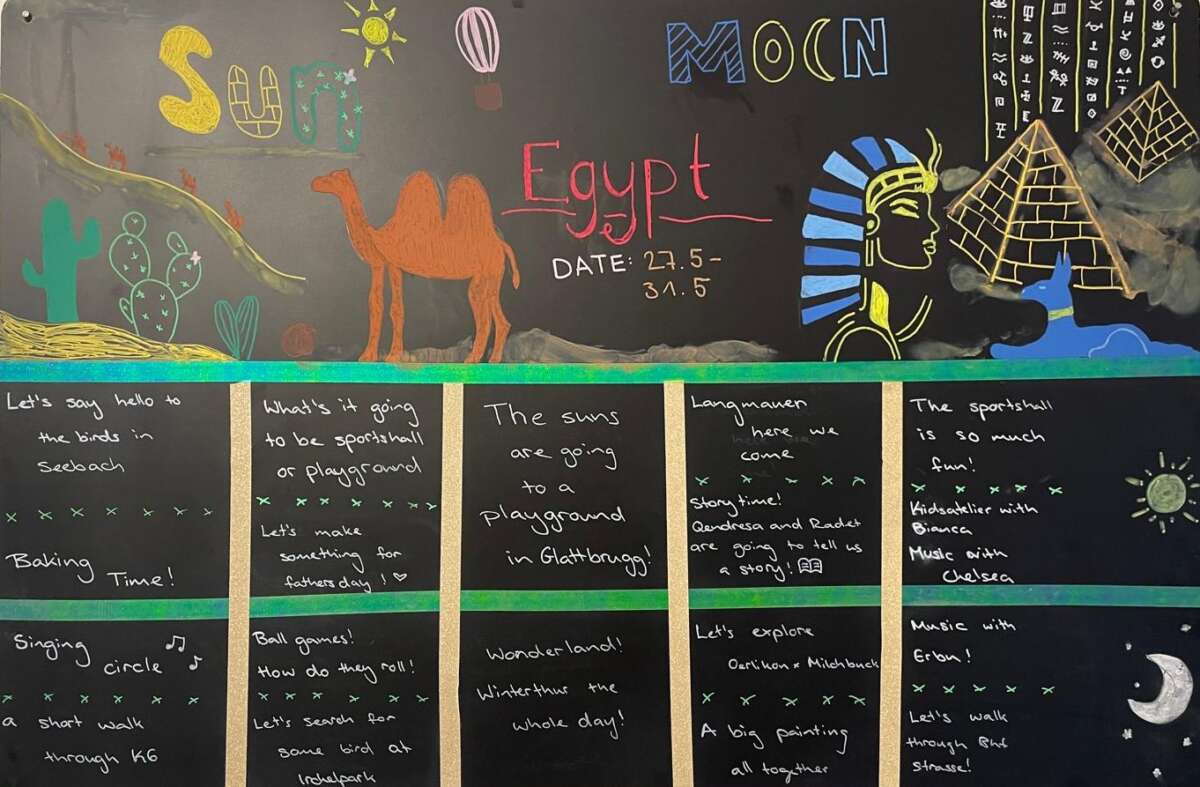 Sun
MOON
Egypt
DATE: 27.5-
31.5
Let's say hello to
the birds in
Seebach
Baking
Time!
What's it going
to be sportshall
or playground
Let's make
something for
fathersday!
The suns
are going
to a
playground
in Glattbrugg!
Langmauer
here we
come
Storytime!
Qendresa and
are going to tell us
a story!
The sportshall
is so much
fun!
Kidsatelier with
Bianca
Music with
Chelsea
Singing
circle
a short walk
through K6
Ball games!
How do they roll!
Let's search for
some bird at
Irchelpark
Wonderland!
Winterthur the
whole day!
Let's explore
Oerlikon × Milchbuck
A big painting
all together
Music with
Let's walk
through Bhf
strasse!